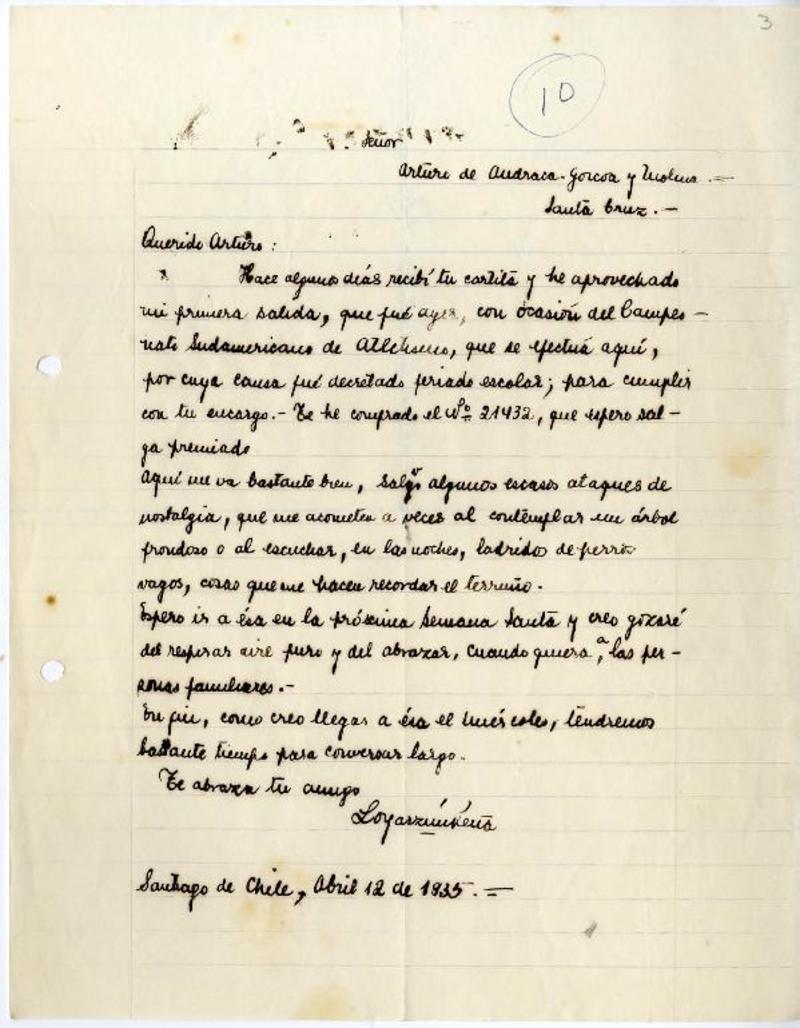 3
10
Señor
Arturo de Andraca-Goicoa y Molina.=
Santa Cruz.-
Querido Arturo:
Hace algunos días recibí tu cartita y he aprovechado
mi primera salida, que fué ayer, con ocasión del Campeo-
nato Sudamericano de Atletismo, que se efectúa aquí,
por cuya causa fué decretado feriado escolar; para cumplir
con tu encargo.- Te he comprado el Nº 21432, que espero sal-
ga premiado
Aquí me va bastante bien, salvo algunos escasos ataques de
nostalgia, que me acometen a veces al contemplar un árbol
frondoso o al escuchar, en las noches, ladridos de perros
vagos, cosas que me hacen recordar el terruño.
Espero ir a ésa en la próxima Semana Santa y creo gozaré
del respirar aire puro y del abrazar, cuando quiera, a las per-
sonas familiares.-
En fin, como creo llegar a ésa el miércoles, tendremos
bastante tiempo para conversar largo.
Te abraza tu amigo
Santiago de Chile, Abril 12 de 1935.=